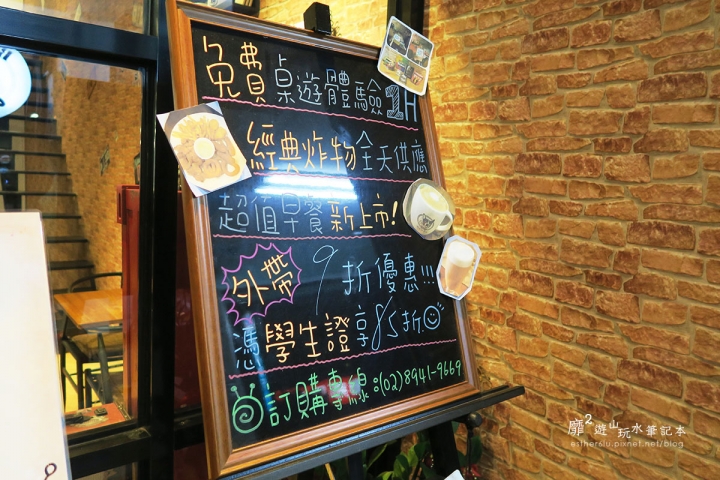 免費桌遊體驗1H
經典炸物全天供應
超值早餐新上市!
外帶9折優惠!!!
憑學生證享85折
訂購專線:(02)8941-9669
靡²遊山玩水筆記本
esther6lu.pixnet.net/blog